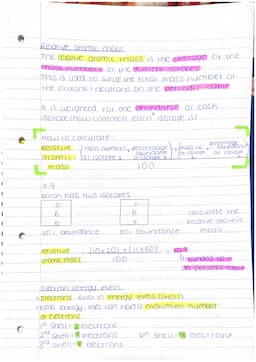 Relative atomic mass
The relative atomic mass is the average of the
mass numbers of the different isotopes
This is used to write the total mass number of
the protons + neutrons on the periodic table
It is weighted for the abundance of each
isotope (how common each isotope is)
How to calculate:
Relative atomic mass
mass number of isotope 1
percentage abundance of isotope 1
percentage abundance of isotope
100
Boron has two isotopes
10 11
B B
calculate the
relative atomic
mass
abundance abundance
Relative atomic mass
100
Electron energy levels
Electrons exist in energy levels (shells)
each energy level can hold a maximum number
of electrons
1st shell= electrons
2nd shell= electrons 4th shell= electrons
3rd shell= electrons